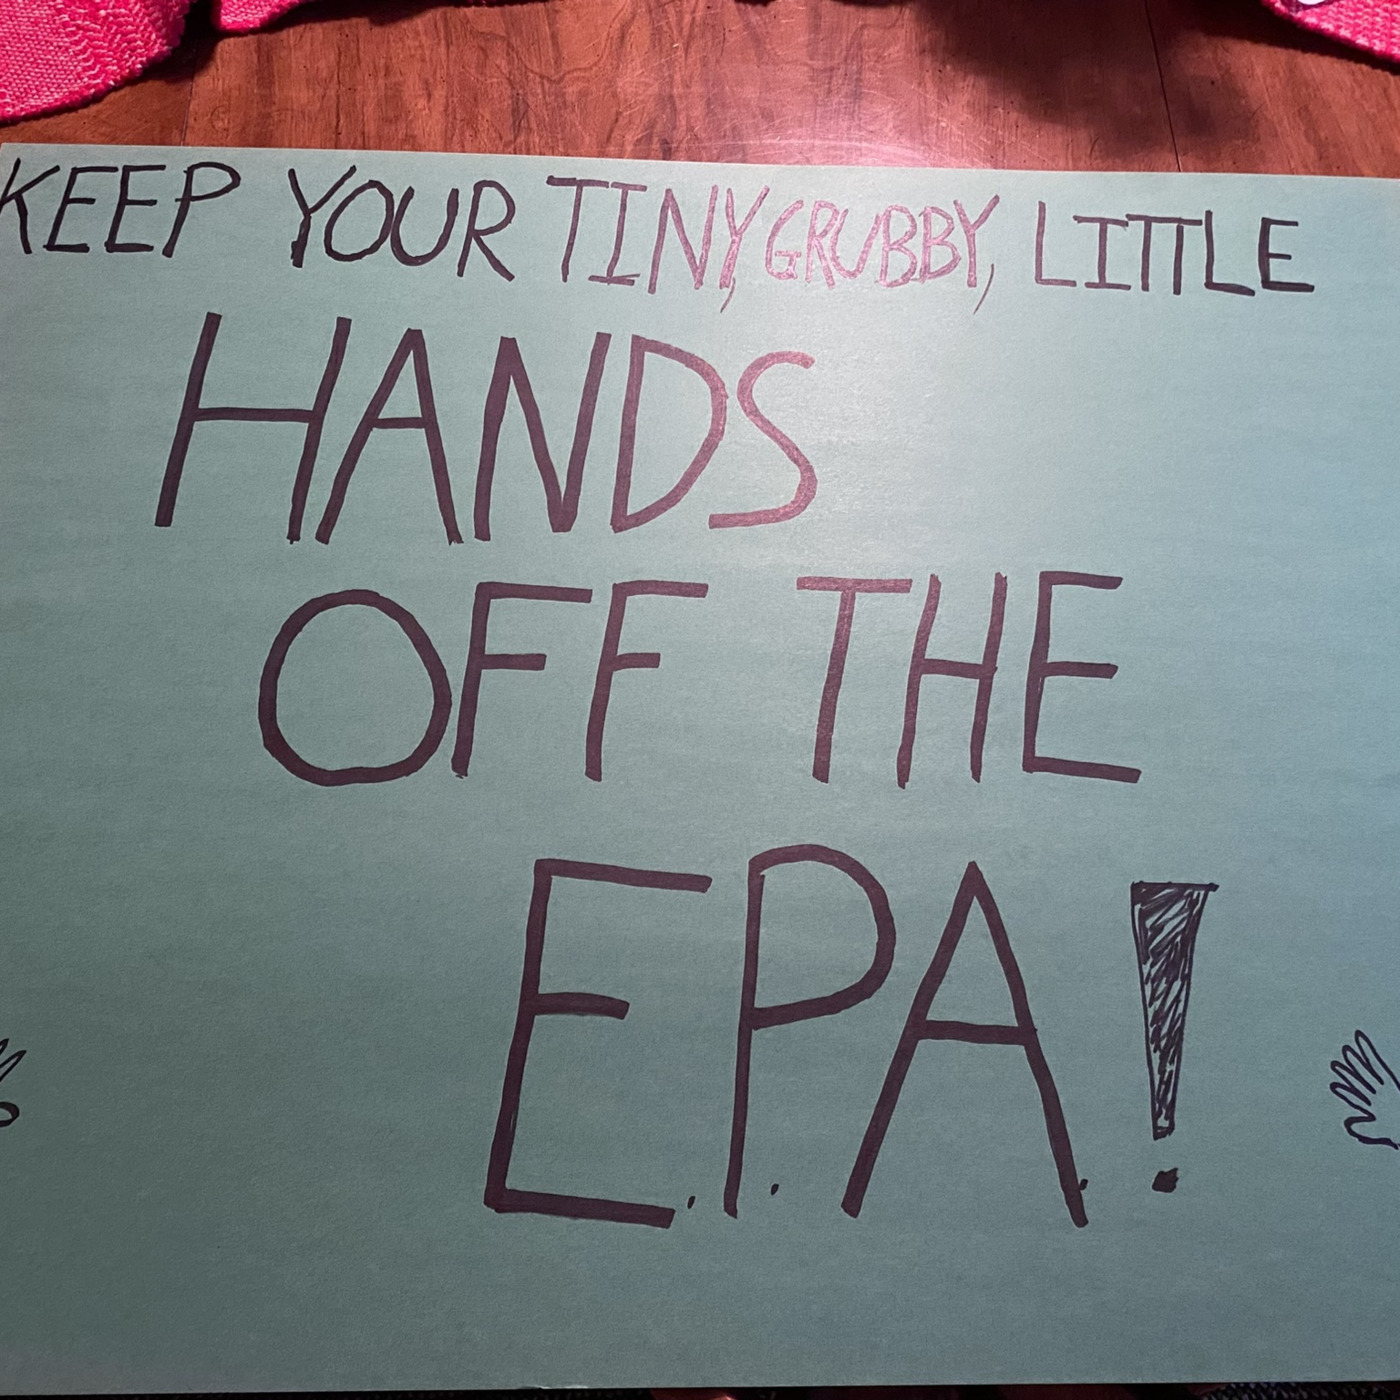 KEEP YOUR TINY, GRUBBY, LITTLE
HANDS
OFF THE
E.P.A.!